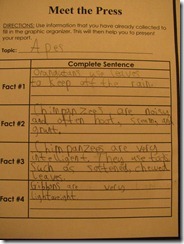 Meet the Press
DIRECTIONS: Use information that you have already collected to
fill in the graphic organizer. This will then help you to present
your report.
Topic: Apes
Complete Sentence
Fact #1
Orangutans use leaves
to keep off the rain.
Fact #2
Chimpanzees are noisy
and often hoot, scream, and
grunt.
Fact #3
Chimpanzees are very
intelligent. They use tools
such as softened, chewed
leaves.
Fact #4
Gibbons are very
lightweight.